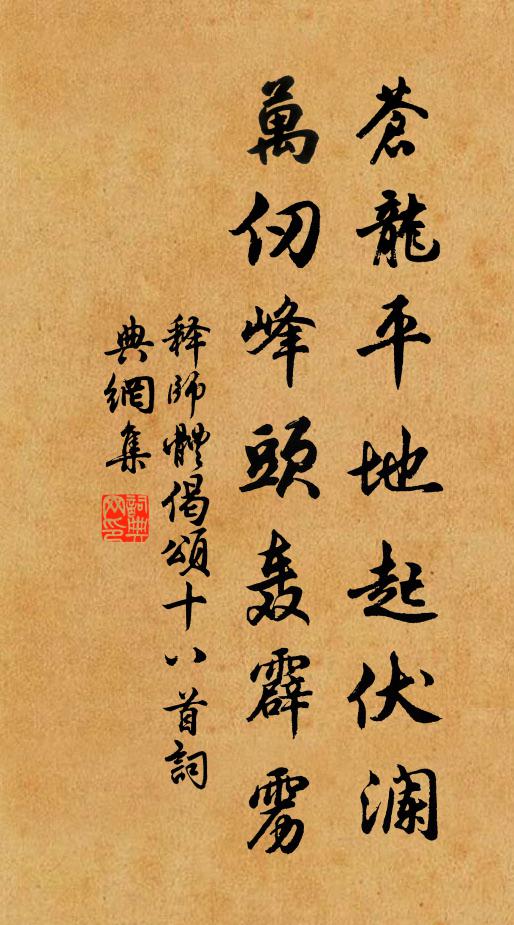 蒼龍平地起伏瀾
萬仞峰頭轰霹雳
释師體偈頌十八首詞
典網集
詞典
网印